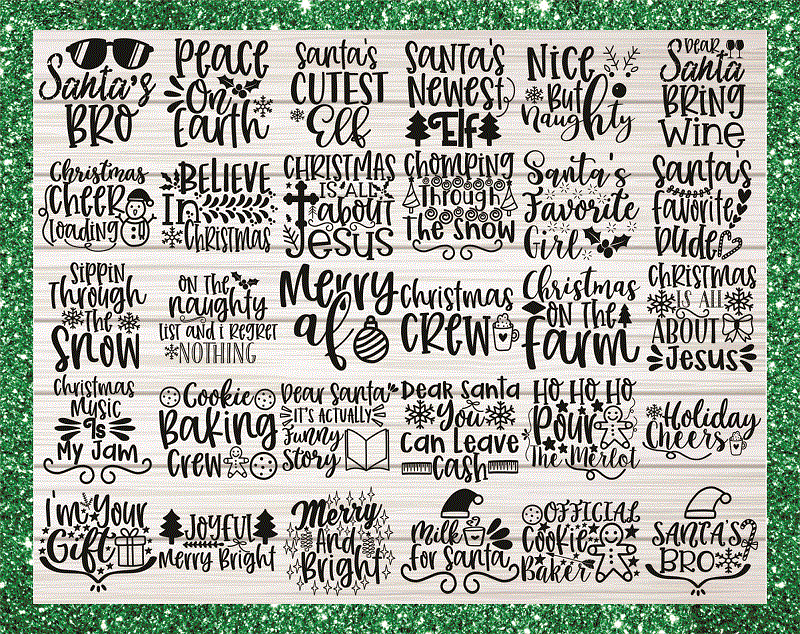 Santa's
BRO
PEACE
On
Earth
Santa's
CUTEST
Elf
SANTA'S
Newest
Elf
NICE
But
Naughty
DEAR
Santa
BRING
Wine
Christmas
CHEER
Loading
BELIEVE
In
Christmas
CHRISTMAS
IS ALL
about
Jesus
Chomping
Through
The Snow
Santa's
Favorite
Girl
Santa's
Favorite
Dude
Sippin
Through
The
Snow
ON THE
naughty
LIST AND I REGRET
NOTHING
Merry
af
Christmas
CREW
Christmas
ON THE
farm
CHRISTMAS
IS ALL
ABOUT
Jesus
Christmas
Music
Is
My Jam
Cookie
Baking
Crew
Dear Santa
IT'S ACTUALLY
Funny
Story
Dear Santa
You
Can Leave
Cash
HO HO HO
Pour
The Merlot
Holiday
Cheers
I'm Your
Gift
JOYFUL
Merry Bright
Merry
AND
Bright
Milk
for Santa
OFFICIAL
Cookie
Baker
SANTA'S
BRO